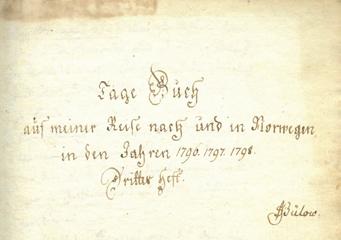 Tage Buch
auf meiner Reise nach und in Norwegen
in den Jahren 1796. 1797. 1798.
Dritter Heft.
Bülow.